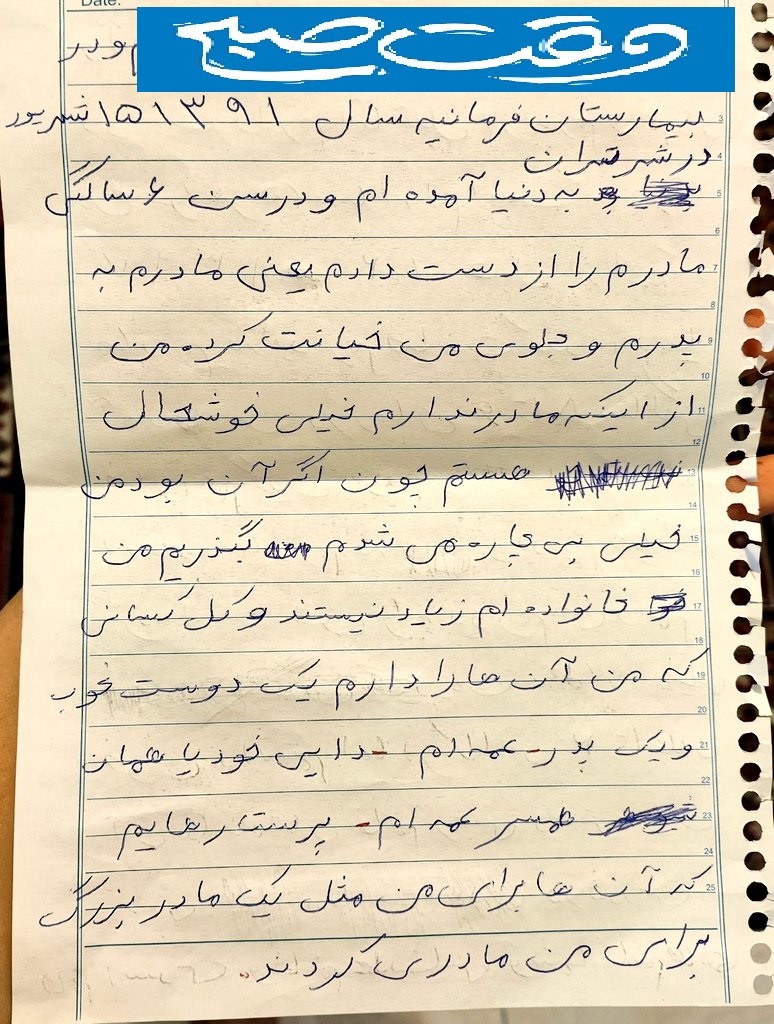 Date:
وقت صبح
م و در
بیمارستان فرمانیه سال ۱۳۹۱ ۱۵ شهریور
در شهر تهران
به دنیا آمده ام و در سن ۶ سالگی
مادرم را از دست دارم یعنی مادرم به
پدرم و جلوی من خیانت کرد. من
از اینکه مادر ندارم خیلی خوشحال
هستم چون اگر آن بود من
خیلی بی چاره می شدم بگذریم من
خانواده ام زیاد نیستند و کل کسانی
که من آن ها را دارم یک دوست خوب
و یک پدر - عمه ام - دایی خود یا همان
همسر عمه ام - پرستارهایم
که آن ها برای من مثل یک مادر بزرگ
برای من مادری کرداند.